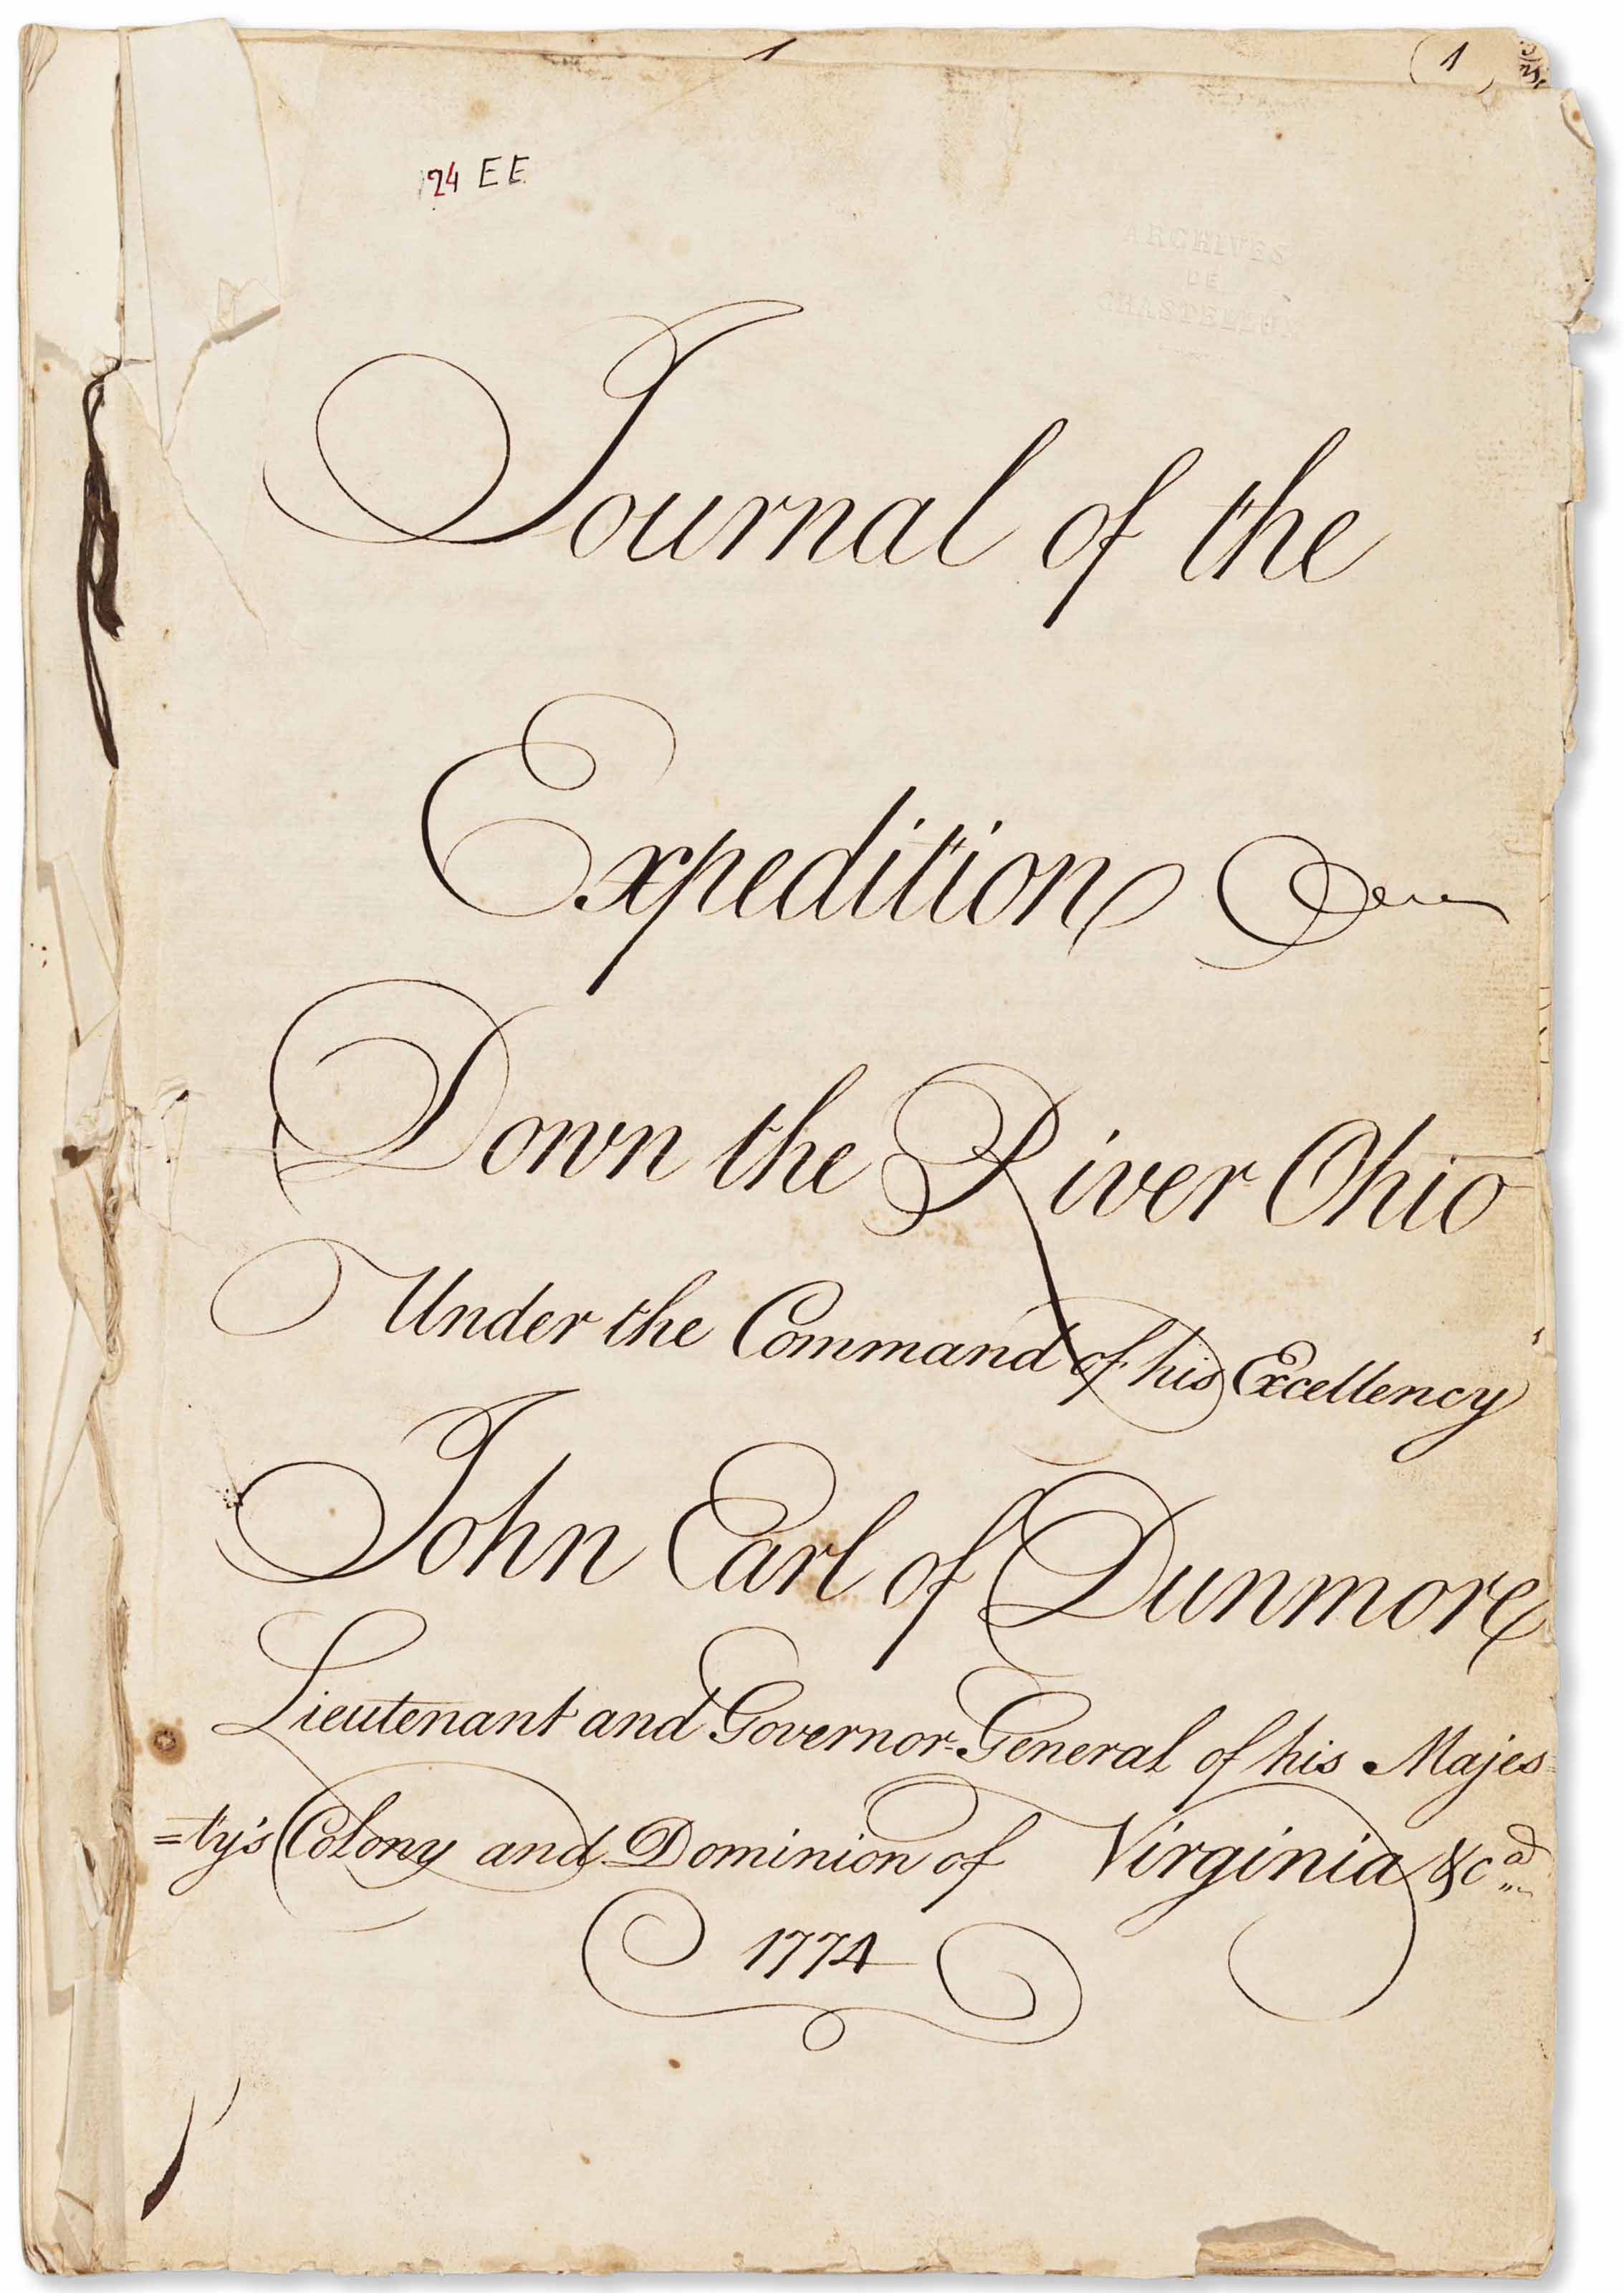 1
(1)
124 EE
ARCHIVES
DE
CHASTELLUX
Journal of the
Expedition
Down the River Ohio
Under the Command of his Excellency
John Earl of Dunmore
Lieutenant and Governor=General of his Majes=
=ty's Colony and Dominion of Virginia &c.a
1774